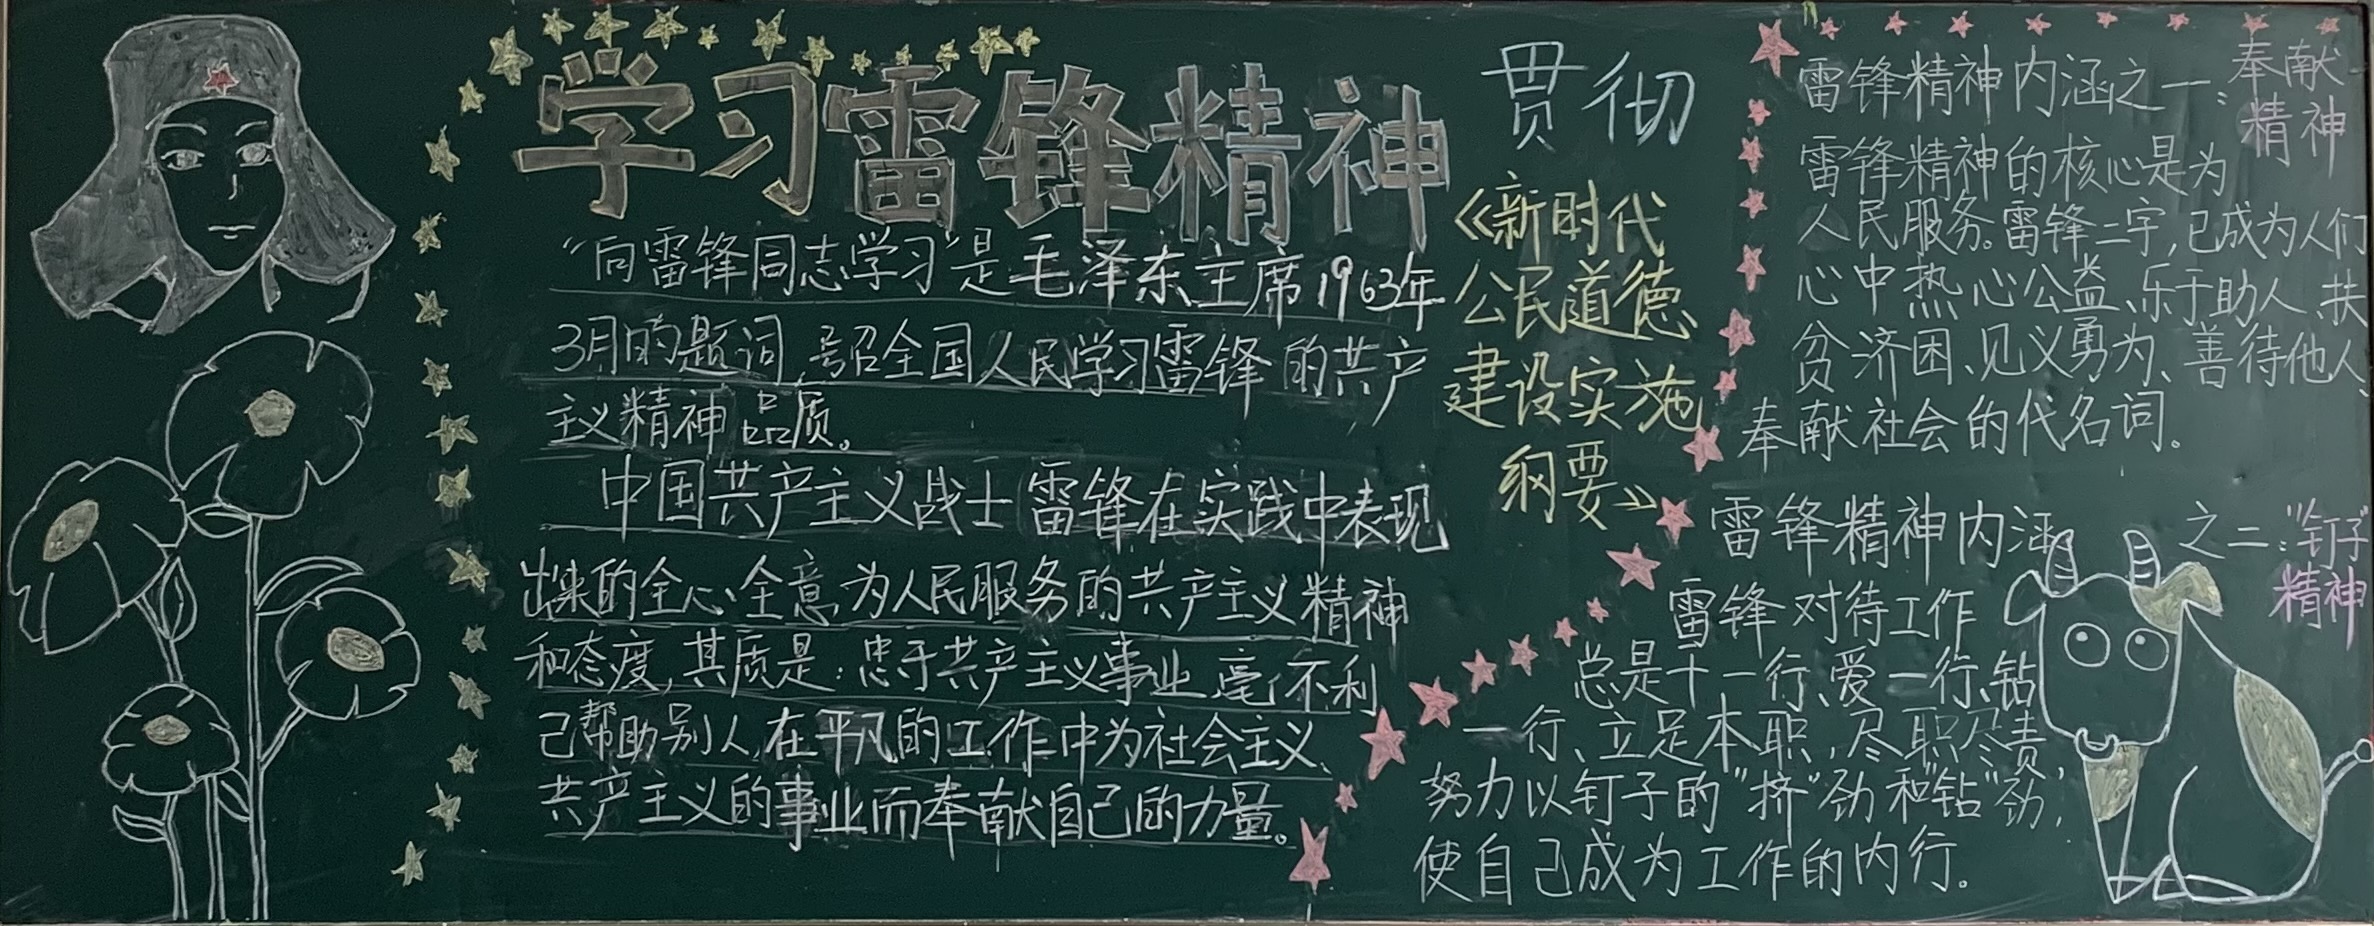 学习雷锋精神
“向雷锋同志学习”是毛泽东主席1963年
3月的题词,号召全国人民学习雷锋的共产
主义精神品质。
中国共产主义战士雷锋在实践中表现
出来的全心全意为人民服务的共产主义精神
和态度,其质是:忠于共产主义事业,毫不利
己帮助别人,在平凡的工作中为社会主义、
共产主义的事业而奉献自己的力量。
贯彻
《新时代
公民道德
建设实施
纲要》
雷锋精神内涵之一:奉献
精神
雷锋精神的核心是为
人民服务。雷锋二字,已成为人们
心中热心公益、乐于助人、扶
贫济困、见义勇为、善待他人、
奉献社会的代名词。
雷锋精神内涵之二:“钉子”
精神
雷锋对待工作
总是干一行、爱一行、钻
一行、立足本职,尽职尽责
努力以钉子的“挤”劲和“钻”劲,
使自己成为工作的内行。